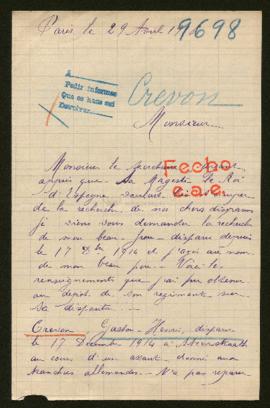 Paris, le 29 Avril 1916
9698
A
Crevon
Monsieur
Fecho
e.a.e.
Monsieur le
appris que Sa Majesté le Roi
d'Espagne
de la recherche de nos chers disparus
je viens vous demander la recherche
de mon beau-frère disparu depuis
le 17 Xbre 1914 et j'agis au nom
de mon beau père. Voici les
renseignements que j'ai pu obtenir
au dépôt de son régiment sur
sa disparition.
Crevon, Gaston-Henri, disparu
le 17 Décembre 1914 à
au cours d'un assaut donné aux
tranchées allemandes. N'a pas reparu